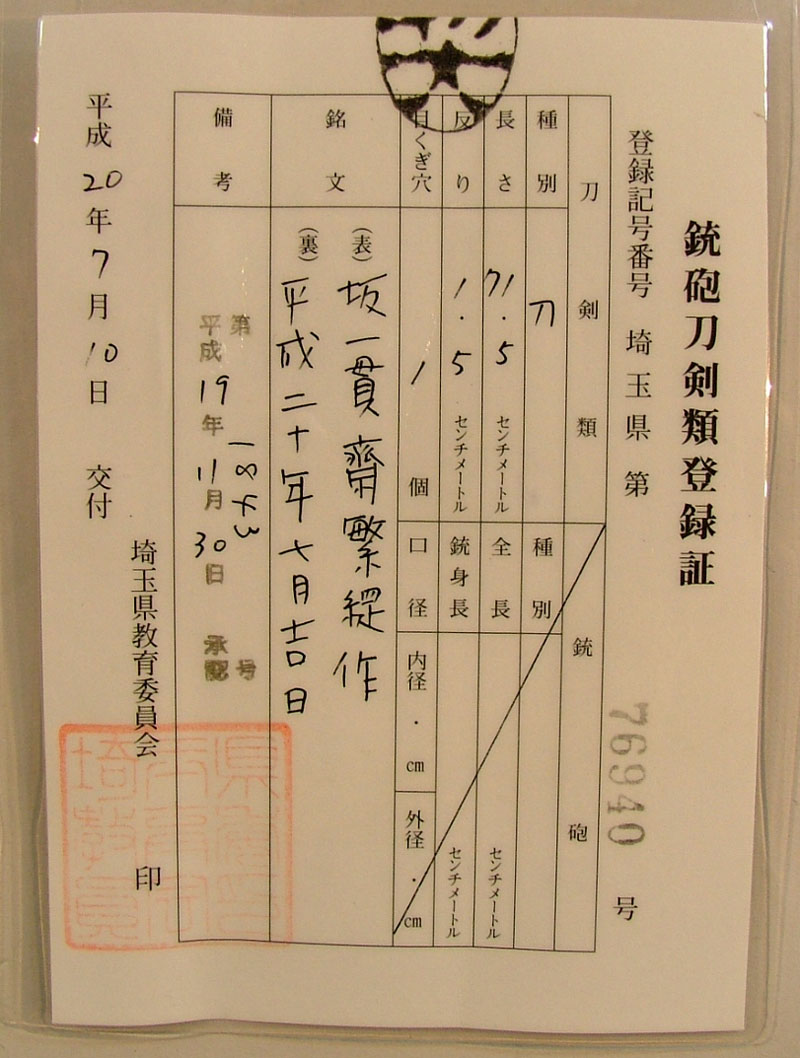 銃砲刀剣類登録証
登録記号番号 埼玉県 第 76940 号
刀剣類
種別 刀
長さ 71.5 センチメートル
反り 1.5 センチメートル
目くぎ穴 1 個
銘文
(表) 坂一貫齋繁綎作
(裏) 平成二十年七月吉日
備考
第 1843 号
平成 19年 11月 30日 承認
銃砲
種別
全長 センチメートル
銃身長 センチメートル
口径 内径・cm 外径・cm
平成 20年 7月 10日 交付
埼玉県教育委員会 印